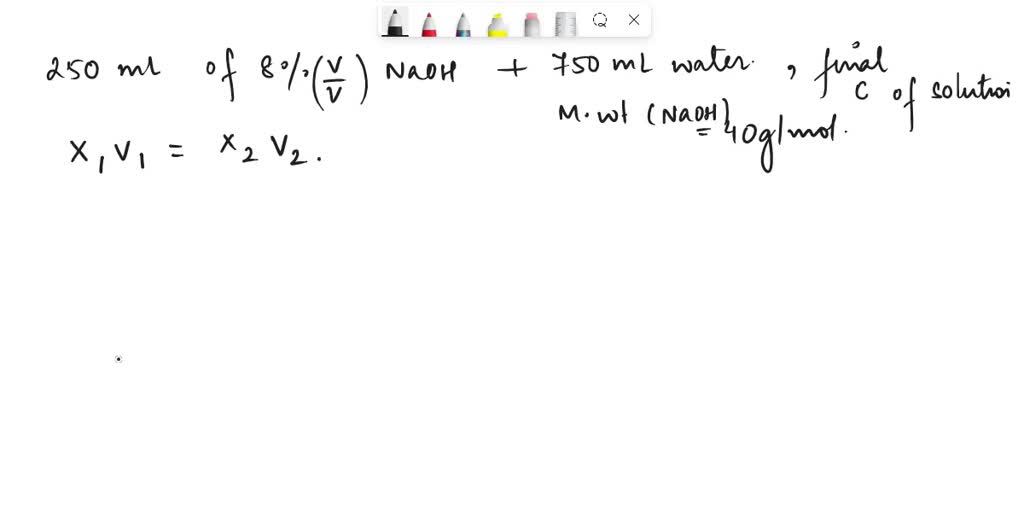 250 ml of 8%(v/v) NaOH + 750 mL water , final C of solution
M.wt (NaOH) = 40g/mol.
X₁V₁ = X₂V₂.